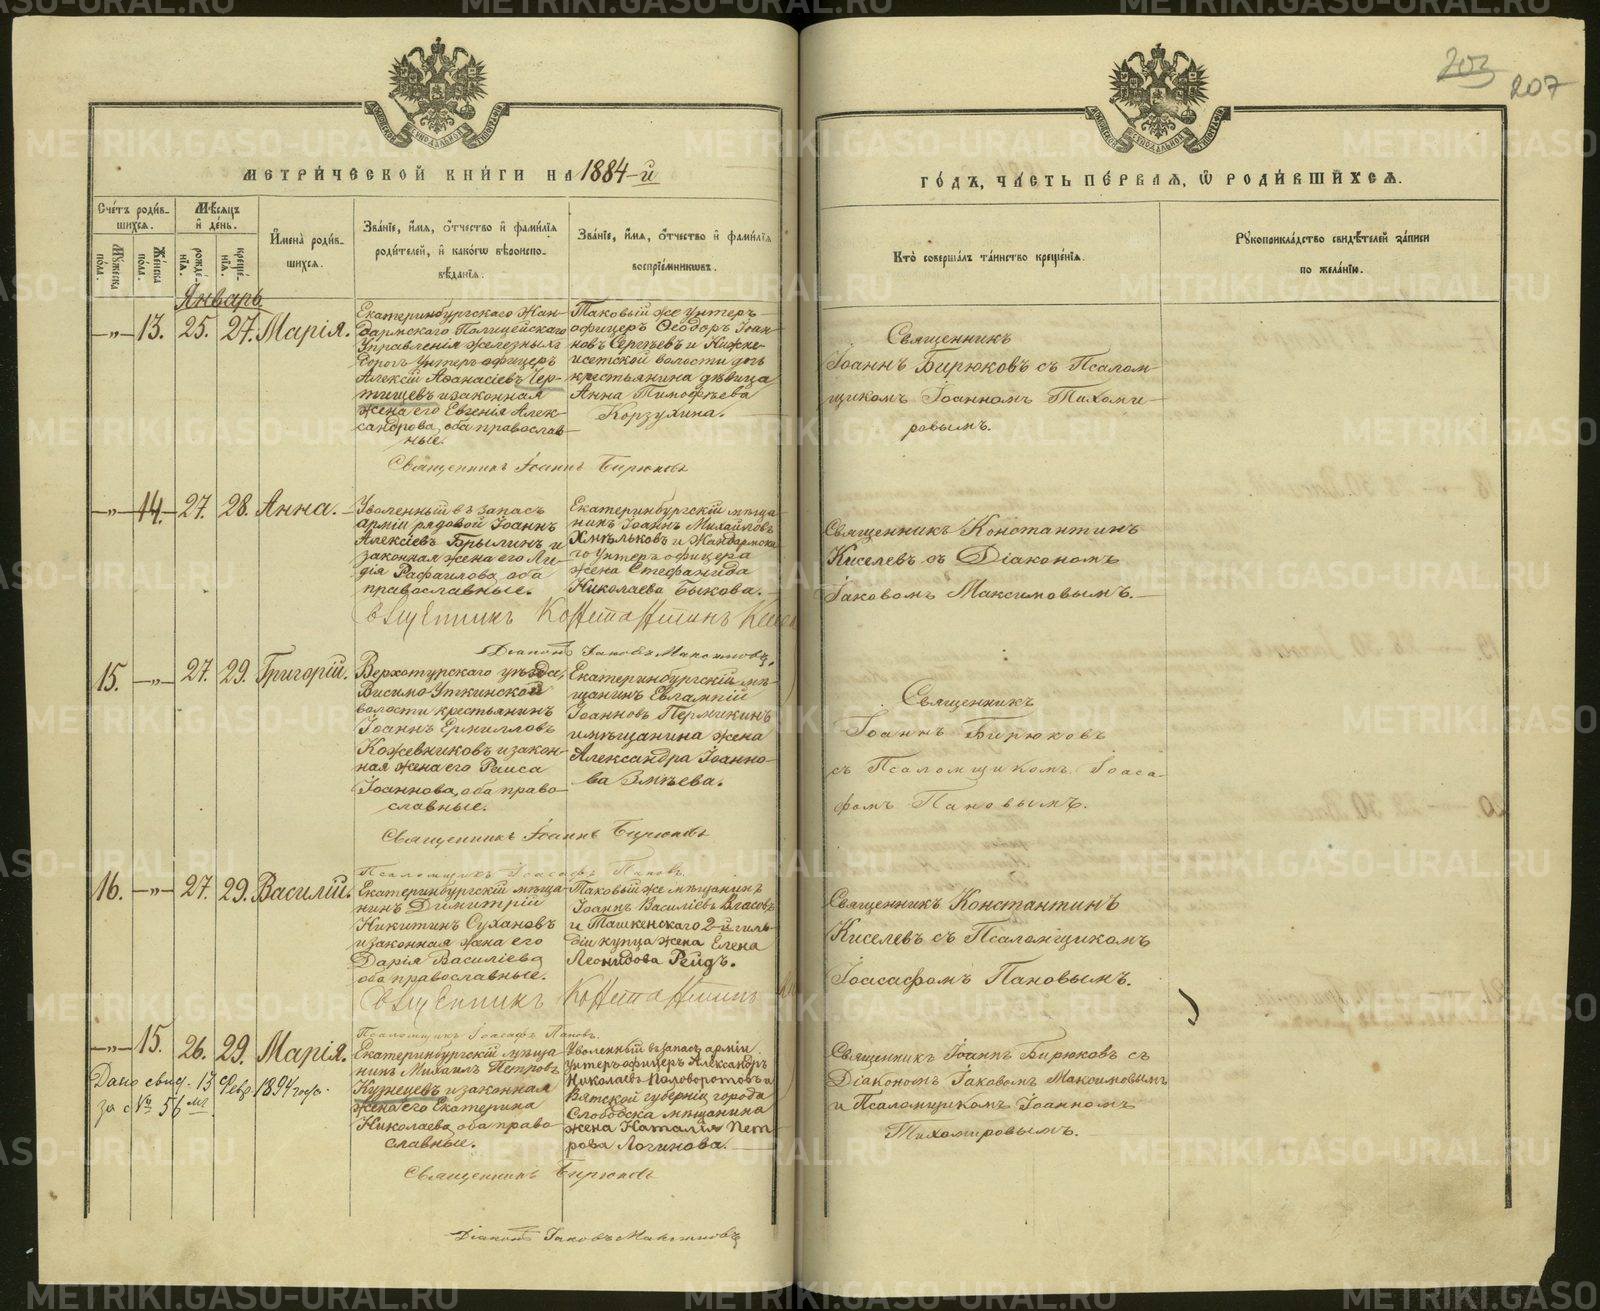 203
207
МЕТРИЧЕСКОЙ КНИГИ НА 1884-й
ГОДЪ, ЧАСТЬ ПЕРВАЯ, Ѿ РОДИВШИХСЯ.
Счетъ родив-
шихся.
Мѣсяцъ
и день.
Мужеска
пола.
Женска
пола.
рожде-
нія.
креще-
нія.
Имена родив-
шихся.
Званіе, имя, отчество и фамилія
родителей, и какогѡ вѣроиспо-
вѣданія.
Званіе, имя, отчество и фамилія
воспріемникѡвъ.
Кто совершалъ таинство крещенія.
Рукоприкладство свидѣтелей записи
по желанію.
Январь
—„— 13. 25. 27. Марія.
Екатеринбургскаго Жан-
дармскаго Полицейскаго
Управленія железныхъ
дорогъ унтеръ офицеръ
Алексій Аѳанасіевъ Чер-
тищевъ и законная
жена его Евгенія Алек-
сандрова, оба православ-
ные.
Таковый же унтеръ-
офицеръ Ѳеодоръ Іоан-
новъ Сергѣевъ и Нижне-
исетской волости дочь
крестьянина дѣвица
Анна Тимоѳѣева
Корзухина.
Священникъ
Іоаннъ Бирюковъ съ Псалом-
щикомъ Іоанномъ Тихоми-
ровымъ.
Священникъ Іоаннъ Бирюковъ
—„— 14. 27. 28. Анна.
Уволенный въ запасъ
арміи рядовой Іоаннъ
Алексіевъ Брылинъ и
законная жена его Ли-
дія Рафаилова, оба
православные.
Екатеринбургскій мѣща-
нинъ Іоаннъ Михайловъ
Хмѣльковъ и Жандармска-
го унтеръ офицера
жена Стефанида
Николаева Быкова.
Священникъ Константинъ
Киселевъ съ Діакономъ
Іаковомъ Максимовымъ.
Священникъ Константинъ Кисел
Діаконъ Іаковъ Максимовъ.
15. —„— 27. 29. Григорій.
Верхотурскаго уѣзда,
Висимо Уткинской
волости крестьянинъ
Іоаннъ Ермилловъ
Кожевниковъ и закон-
ная жена его Раиса
Іоаннова, оба право-
славные.
Екатеринбургскій мѣ-
щанинъ Евлампій
Іоанновъ Пермикинъ
и мѣщанина жена
Александра Іоанно-
ва Змѣева.
Священникъ
Іоаннъ Бирюковъ
съ Псаломщикомъ Іоаса-
фомъ Пановымъ.
Священникъ Іоаннъ Бирюковъ
Псаломщикъ Іоасафъ Пановъ.
16. —„— 27. 29. Василій.
Екатеринбургскій мѣща-
нинъ Димитрій
Никитинъ Сухановъ
и законная жена его
Дарія Василіева
оба православные.
Таковый же мѣщанинъ
Іоаннъ Василіевъ Власовъ
и Ташкенскаго 2-й гиль-
діи купца жена Елена
Леонидова Рейдъ.
Священникъ Константинъ
Киселевъ съ Псаломщикомъ
Іоасафомъ Пановымъ.
Священникъ Константинъ
Псаломщикъ Іоасафъ Пановъ.
—„— 15. 26. 29. Марія.
Дано свид. 13 Февр 1894 года.
за № 56 мъ
Екатеринбургскій мѣща-
нинъ Михаилъ Петровъ
Кузнецевъ и законная
жена его Екатерина
Николаева, оба право-
славные.
Уволенный въ запасъ арміи
унтеръ офицеръ Александръ
Николаевъ Половоротовъ и
Вятской губерніи города
Слободска мѣщанина
жена Наталія Пет-
рова Логинова.
Священникъ Іоаннъ Бирюковъ съ
Діакономъ Іаковомъ Максимовымъ
и Псаломщикомъ Іоанномъ
Тихомировымъ.
Священникъ Бирюковъ
Діаконъ Іаковъ Максимовъ
METRIKI.GASO-URAL.RU